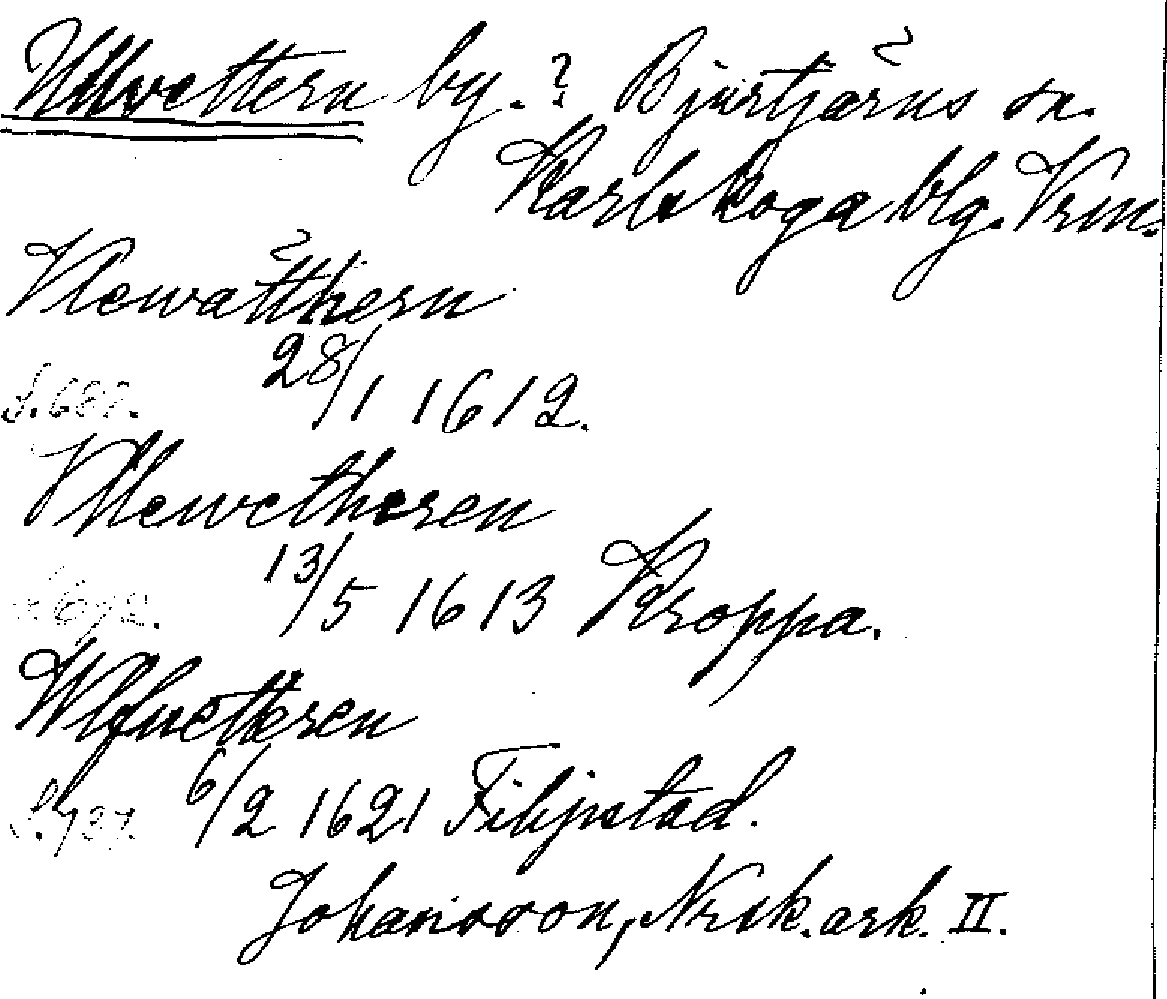 Ullvettern by. ? Bjurtjärns sn.
Karlskoga blg. Vrm.
Vlewåtthern
28/1 1612.
S. 687.
Vllewetheren
13/5 1613 Kroppa.
Wlfuetteren
S. 737. 6/2 1621 Filipstad.
Johansson, Norsk. ark. II.